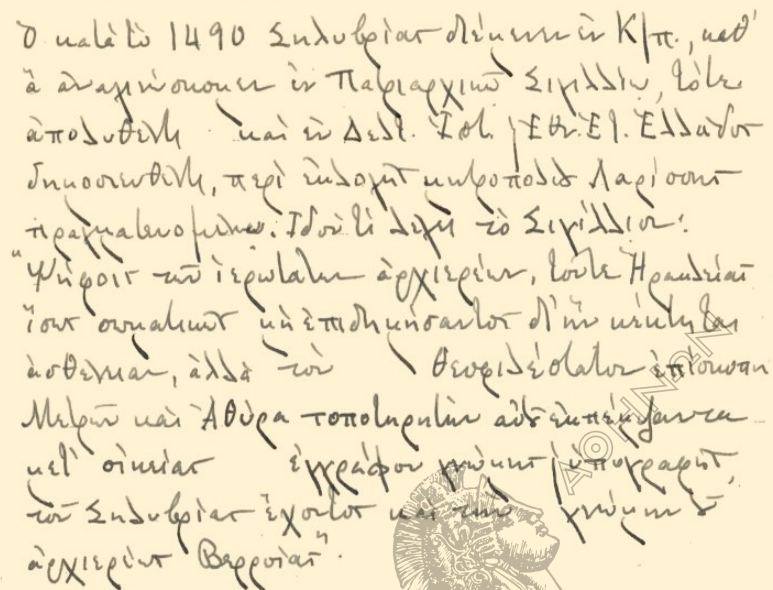 ὁ κατὰ τὸ 1490 Σηλυβρίας διέμενεν ἐν Κ/π., καθ'
ἃ ἀναγινώσκομεν ἐν Πατριαρχικῷ Σιγιλλίῳ, τότε
ἀπολυθέντι καὶ ἐν Δελτ. Ἱστ. Ἐθν. Ἑτ. Ἑλλάδος
δημοσιευθέντι, περὶ ἐκλογῆς μητροπολίτου Λαρίσσης
πραγματευομένῳ. Ἰδοὺ τί λέγει τὸ Σιγίλλιον:
"Ψήφοις τῶν ἱερωτάτων ἀρχιερέων, τοῦτε Ἡρακλείας
ἴσως σωματικῶς μὴ ἐπιδημήσαντος δι' ἣν κέκτηται
ἀσθένειαν, ἀλλὰ τὸν θεοφιλέστατον ἐπίσκοπον
Μετρῶν καὶ Ἀθύρα τοποτηρητὴν αὐτοῦ ἐκπέμψαντα
μετ' οἰκείας ἐγγράφου γνώμης ὑπογραφῆς,
τοῦ Σηλυβρίας ἔχοντος καὶ τὴν γνώμην τοῦ
ἀρχιερέως Βερροίας".
ΑΘΗΝΩΝ